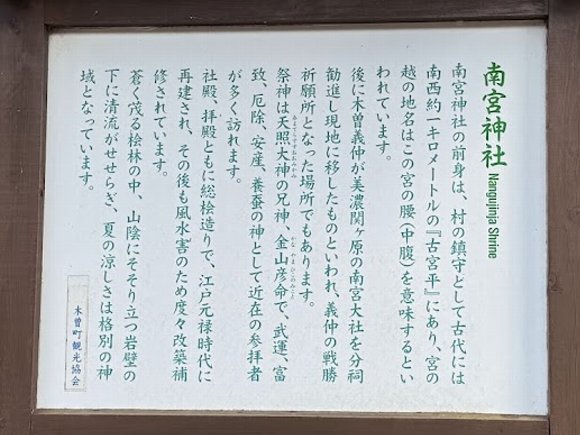 南宮神社
Nangujinja Shrine
南宮神社の前身は、村の鎮守として古代には
南西約一キロメートルの『古宮平』にあり、宮の
越の地名はこの宮の腰(中腹)を意味するとい
われています。
後に木曽義仲が美濃関ヶ原の南宮大社を分祠
勧進し現地に移したものといわれ、義仲の戦勝
祈願所となった場所でもあります。
祭神は天照大神の兄神、金山彦命で、武運、富
致、厄除、安産、養蚕の神として近在の参拝者
が多く訪れます。
社殿、拝殿ともに総桧造りで、江戸元禄時代に
再建され、その後も風水害のため度々改築補
修されています。
蒼く茂る桧林の中、山陰にそそり立つ岩壁の
下に清流がせせらぎ、夏の涼しさは格別の神
域となっています。
木曽町観光協会